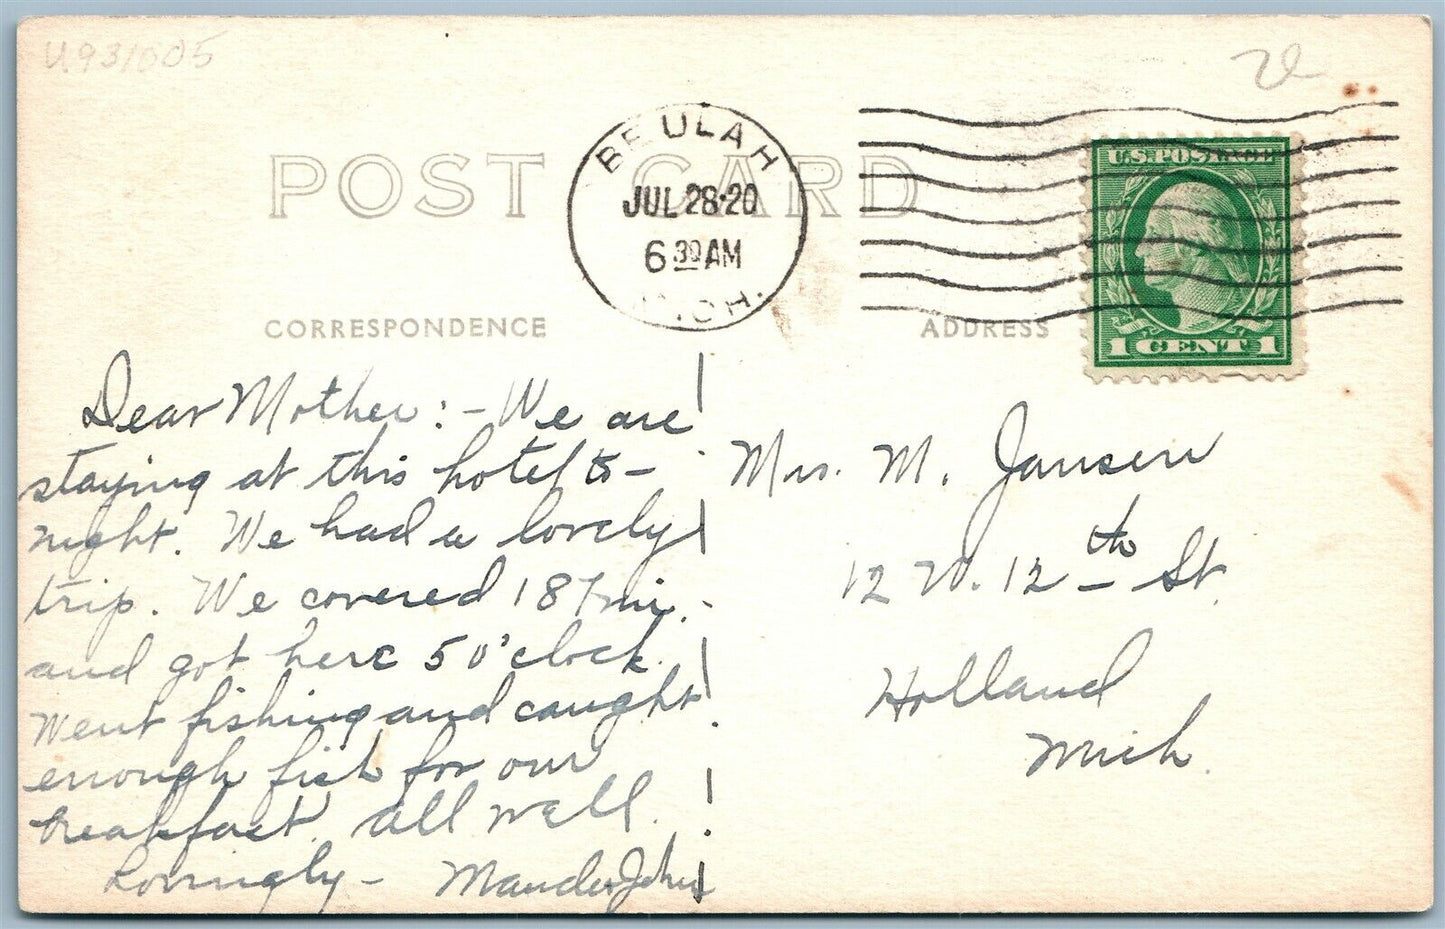 U931005
POST CARD
BEULAH
JUL 28·20
6 30 AM
MICH.
U.S. POSTAGE
1 CENT 1
CORRESPONDENCE
ADDRESS
Dear Mother:- We are
staying at this hotel to-
night. We had a lovely
trip. We covered 187 mi.
and got here 5 o'clock.
Went fishing and caught
enough fish for our
breakfast. All well.
Lovingly - John
Mrs. M. Jansen
12 W. 12th St.
Holland
Mich.